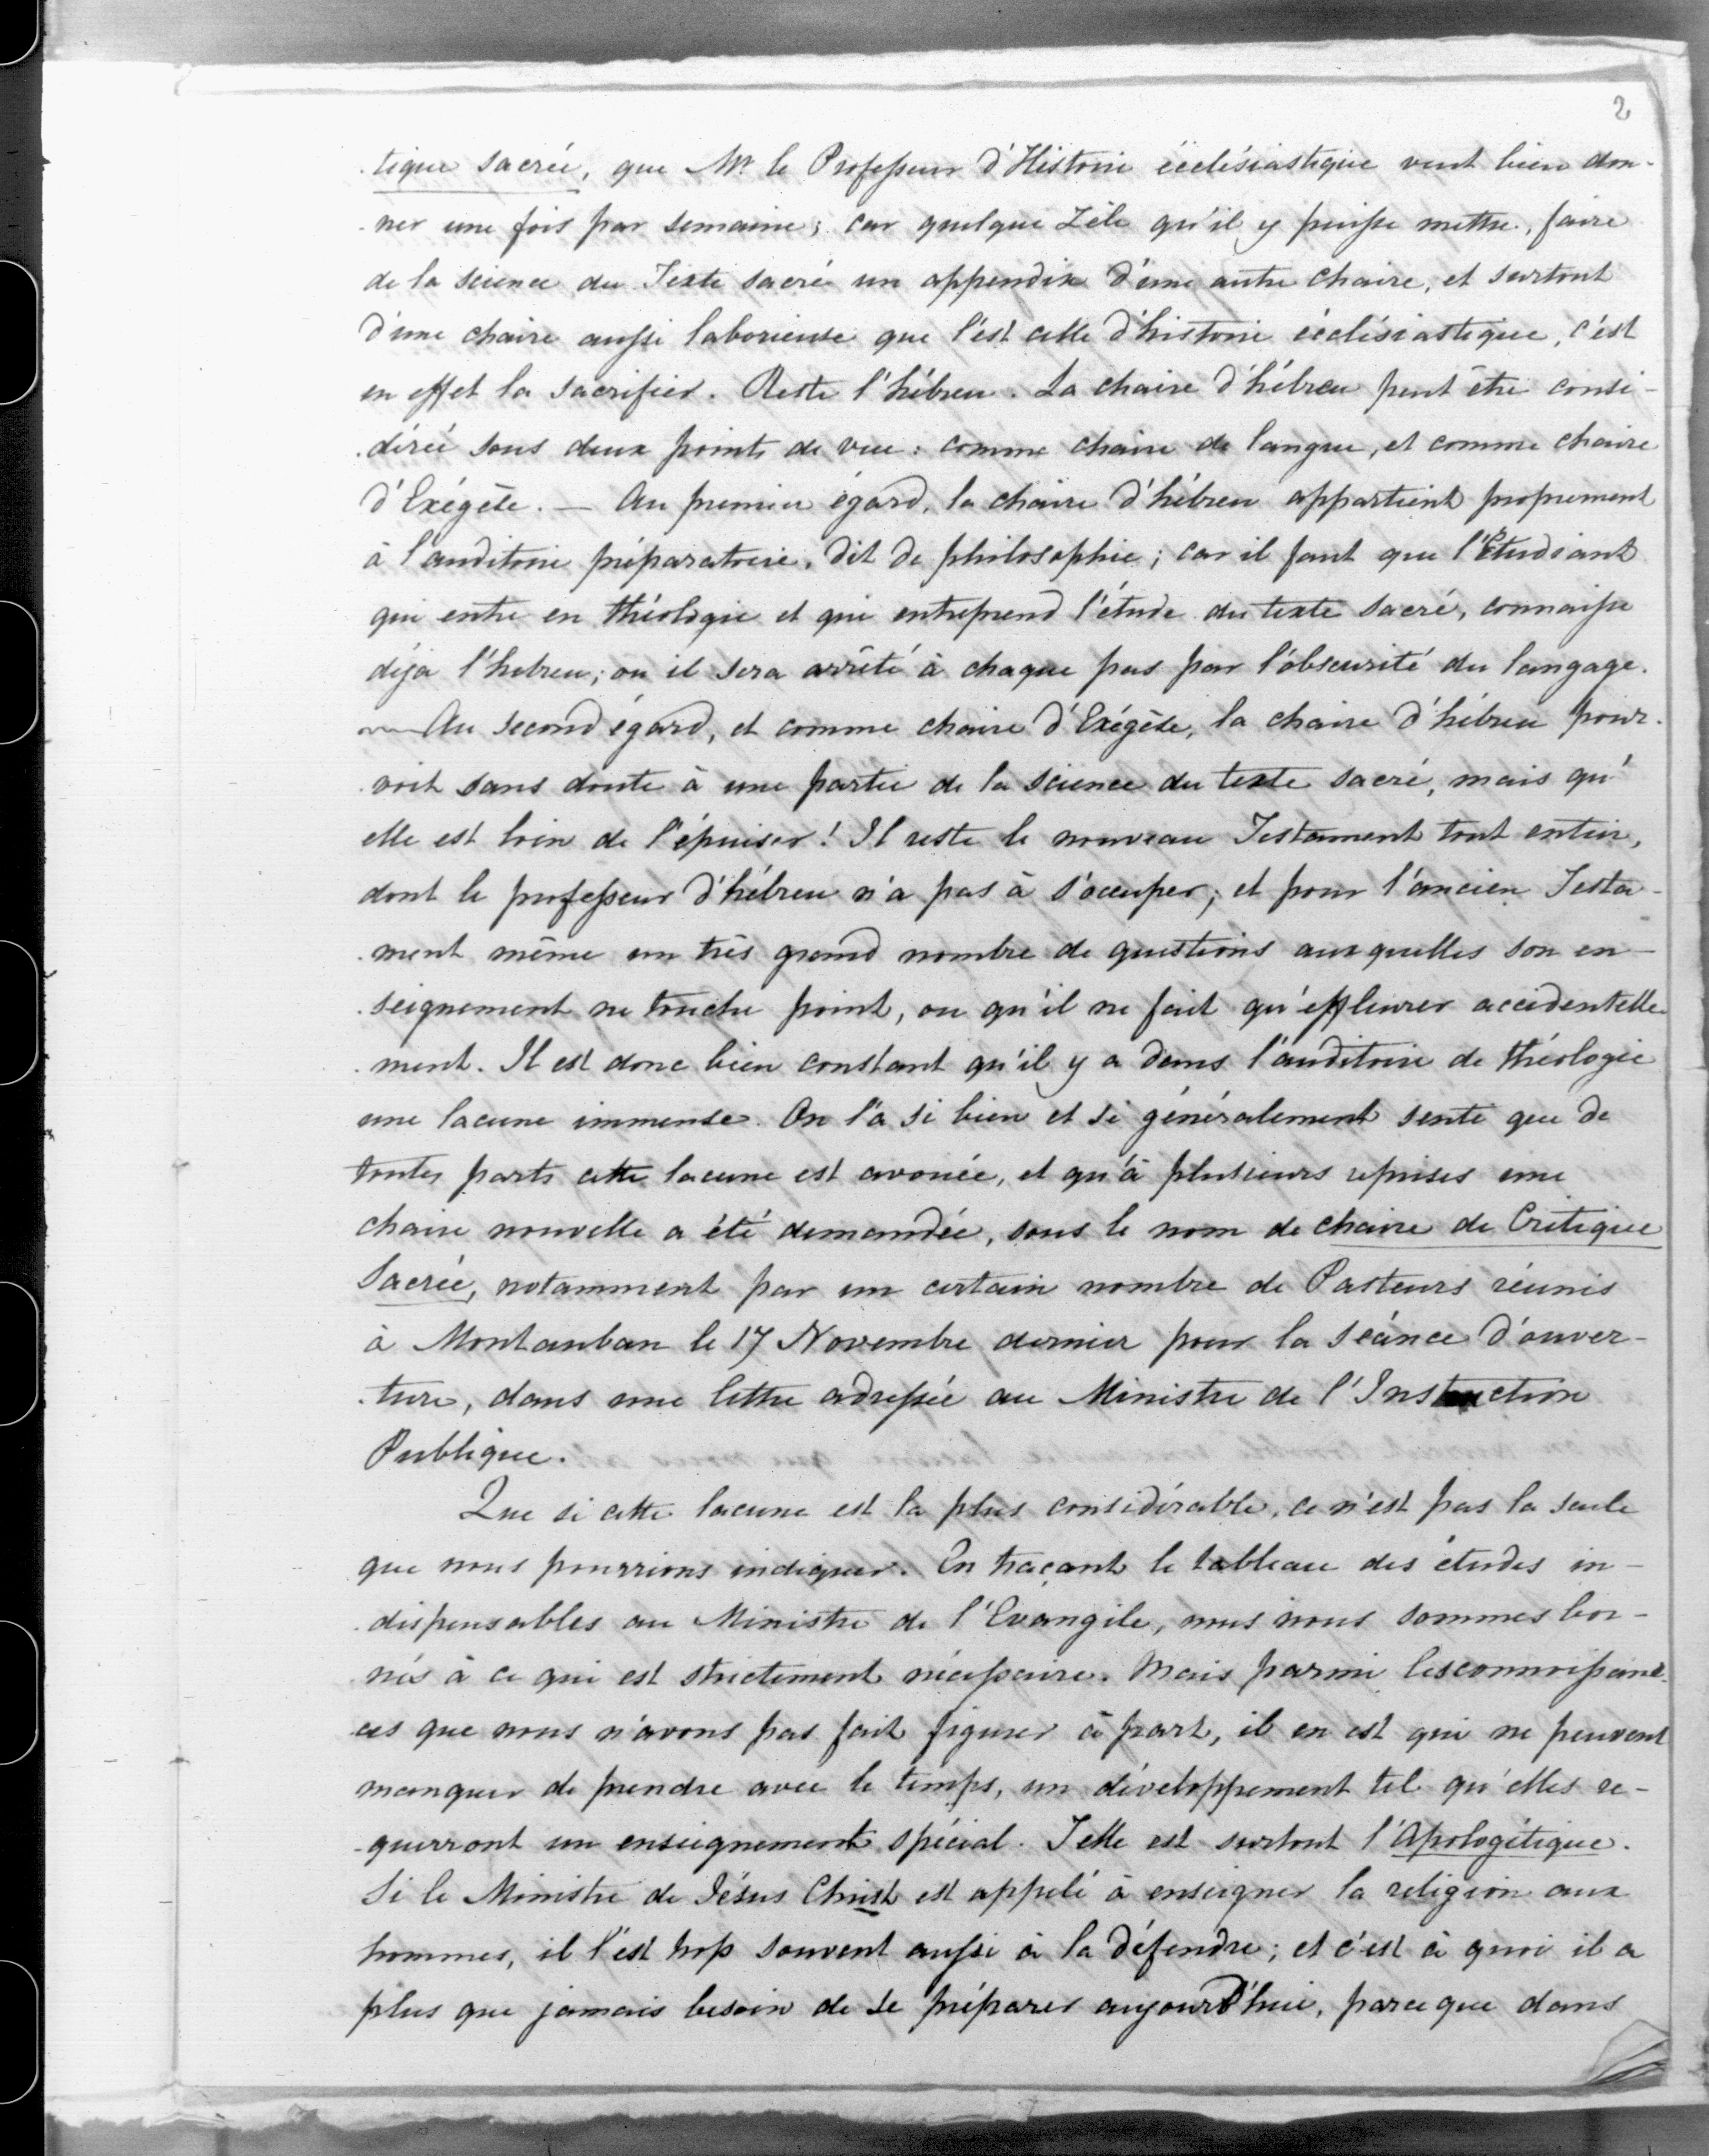 2
tique sacrée, que Mr le Professeur d'Histoire écclésiastique veut bien don-
-ner une fois par semaine; car quelque zèle qu'il y puisse mettre, faire
de la science du Texte sacré un appendix d'une autre chaire, et surtout
d'une chaire aussi laborieuse que l'est celle d'histoire écclésiastique, c'est
en effet la sacrifier. Reste l'hébreu. La chaire d'hébreu peut être consi-
-dérée sous deux points de vue: comme chaire de langue, et comme chaire
d'Exégèse. — Au premier égard, la chaire d'hébreu appartient proprement
à l'auditoire préparatoire, dit de philosophie; car il faut que l'Etudiant
qui entre en théologie et qui entreprend l'étude du texte sacré, connaisse
déja l'hebreu; ou il sera arrêté à chaque pas par l'obscurité du langage.
— Au second égard, et comme chaire d'Exégèse, la chaire d'hébreu pour-
-voit sans doute à une partie de la science du texte sacré, mais qu'
elle est loin de l'épuiser! Il reste le nouveau Testament tout entier,
dont le professeur d'hébreu n'a pas à s'occuper; et pour l'ancien Testa-
-ment même un très grand nombre de questions aux quelles son en-
-seignement ne touche point, ou qu'il ne fait qu'effleurer accidentelle-
-ment. Il est donc bien constant qu'il y a dans l'auditoire de théologie
une lacune immense. On l'a si bien et si généralement senti que de
toutes parts cette lacune est avouée, et qu'à plusieurs reprises une
chaire nouvelle a été demandée, sous le nom de chaire de Critique
Sacrée, notamment par un certain nombre de Pasteurs réunis
à Montauban le 17 Novembre dernier pour la séance d'ouver-
-ture, dans une lettre adressée au Ministre de l'Instruction
Publique.
Que si cette lacune est la plus considérable, ce n'est pas la seule
que nous pourrions indiquer. En traçant le tableau des études in-
-dispensables au Ministre de l'Evangile, nous nous sommes bor-
-nés à ce qui est strictement nécessaire. Mais parmi les connoissan-
-ces que nous n'avons pas fait figurer à part, il en est qui ne peuvent
manquer de prendre avec le temps, un développement tel qu'elles re-
-querront un enseignement spécial. Telle est surtout l'Apologétique.
Si le Ministre de Jésus Christ est appelé à enseigner la religion aux
hommes, il l'est trop souvent aussi à la défendre; et c'est à quoi il a
plus que jamais besoin de se préparer aujourd'hui, parce que dans